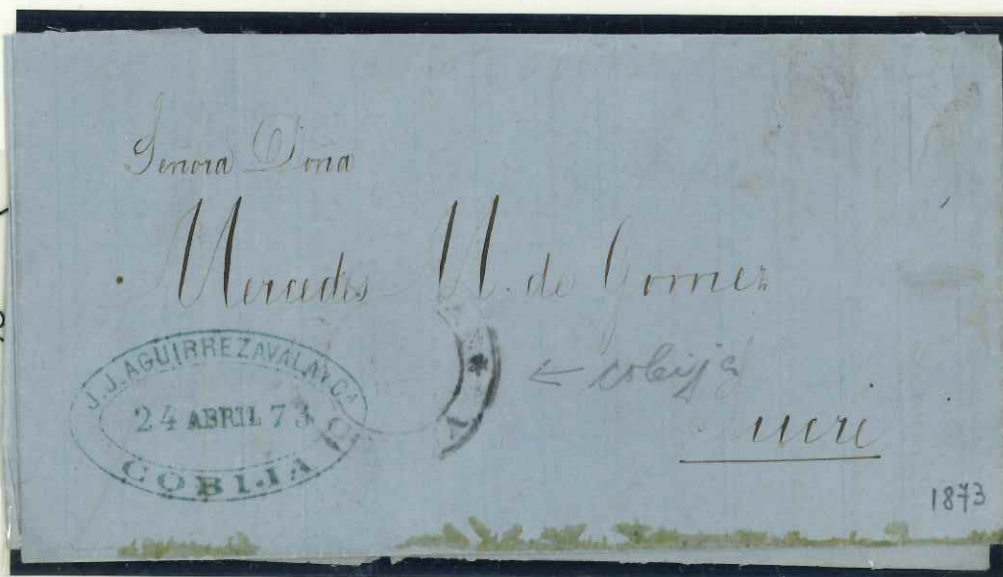 Señora Doña
Mercedes M. de Gomez
J.J. AGUIRREZAVALA Y CA
24 ABRIL 73
COBIJA
← cobija
Sucre
1873